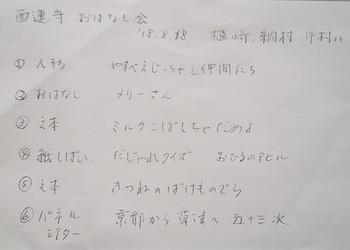 西蓮寺 おはなし会
'18.8.18 植﨑、綱村 中村ハ
① 人形 やすべえじーちゃと仲間たち
② おはなし メリーさん
③ えほん ミルクこぼしちゃだめよ
④ 紙しばい だじゃれクイズ おひるのアヒル
⑤ え本 きつねのばけものでら
⑥ パネルシアター 京都から草津へ 五十三次